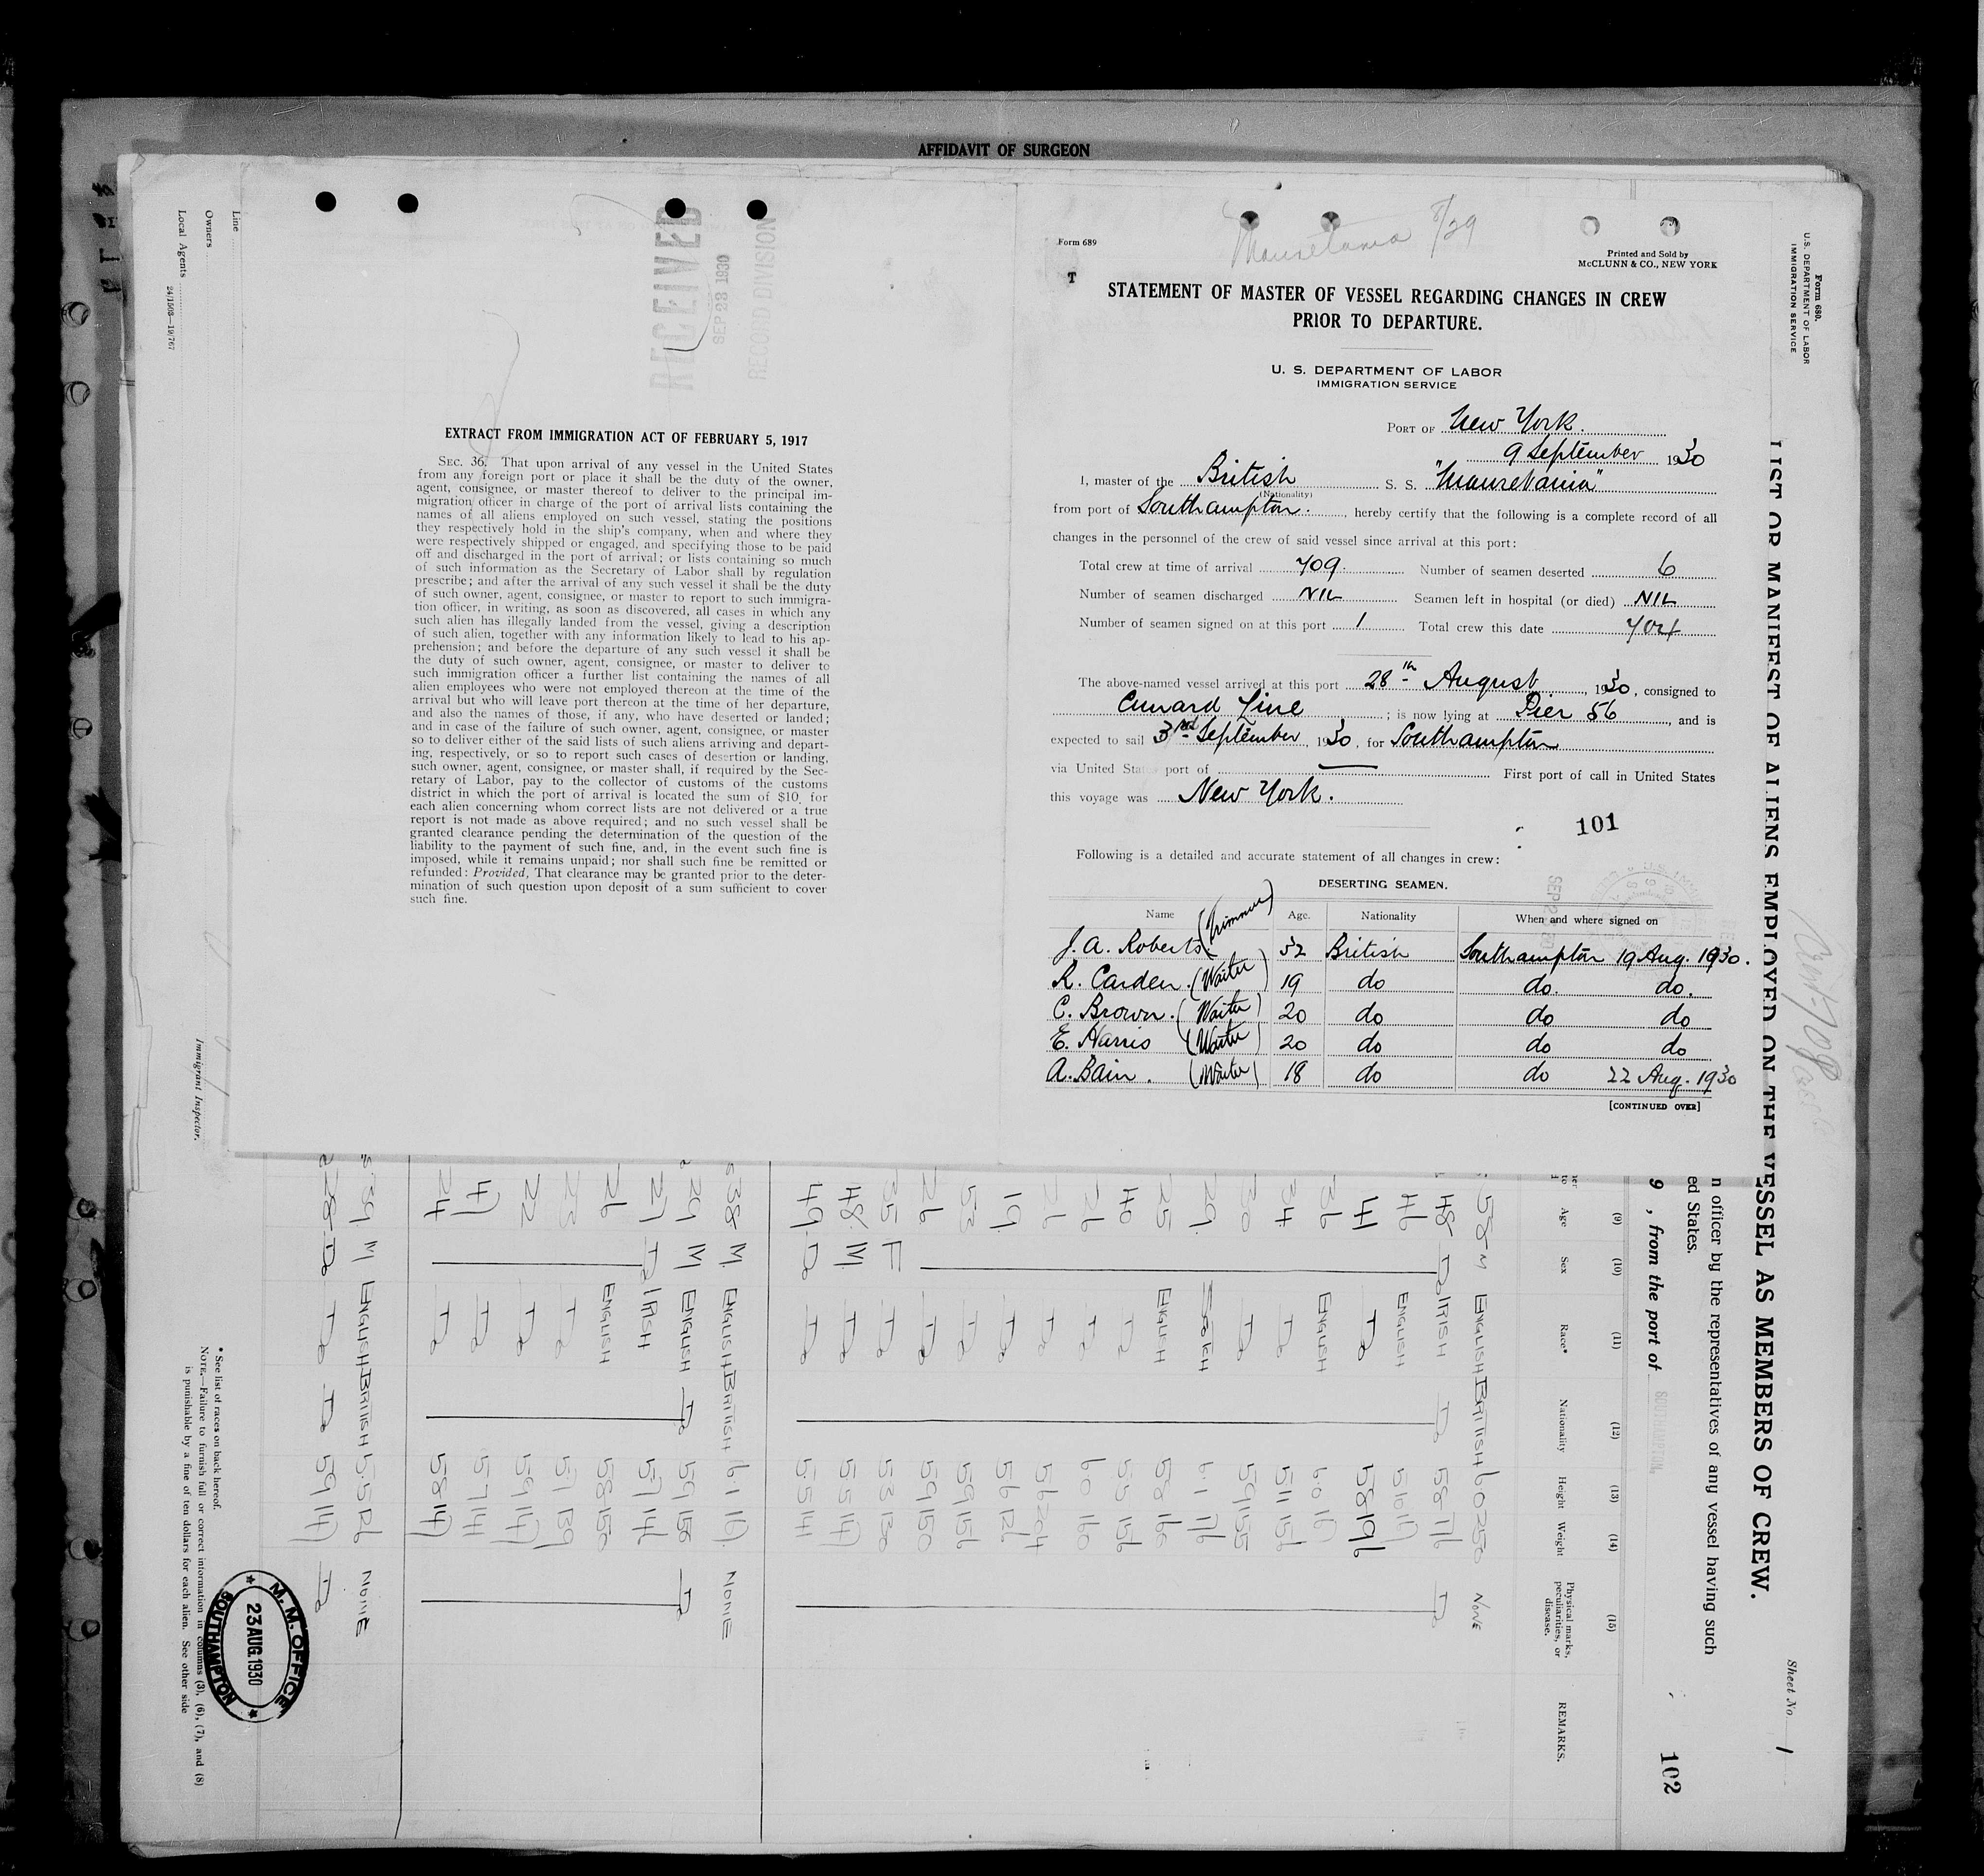 AFFIDAVIT OF SURGEON
Line
Owners
Local Agents
24/1503—19/767
Immigrant Inspector.
RECEIVED
SEP 23 1930
RECORD DIVISION
EXTRACT FROM IMMIGRATION ACT OF FEBRUARY 5, 1917
SEC. 36. That upon arrival of any vessel in the United States
from any foreign port or place it shall be the duty of the owner,
agent, consignee, or master thereof to deliver to the principal im-
migration officer in charge of the port of arrival lists containing the
names of all aliens employed on such vessel, stating the positions
they respectively hold in the ship's company, when and where they
were respectively shipped or engaged, and specifying those to be paid
off and discharged in the port of arrival; or lists containing so much
of such information as the Secretary of Labor shall by regulation
prescribe; and after the arrival of any such vessel it shall be the duty
of such owner, agent, consignee, or master to report to such immigra-
tion officer, in writing, as soon as discovered, all cases in which any
such alien has illegally landed from the vessel, giving a description
of such alien, together with any information likely to lead to his ap-
prehension; and before the departure of any such vessel it shall be
the duty of such owner, agent, consignee, or master to deliver to
such immigration officer a further list containing the names of all
alien employees who were not employed thereon at the time of the
arrival but who will leave port thereon at the time of her departure,
and also the names of those, if any, who have deserted or landed;
and in case of the failure of such owner, agent, consignee, or master
so to deliver either of the said lists of such aliens arriving and depart-
ing, respectively, or so to report such cases of desertion or landing,
such owner, agent, consignee, or master shall, if required by the Sec-
retary of Labor, pay to the collector of customs of the customs
district in which the port of arrival is located the sum of $10, for
each alien concerning whom correct lists are not delivered or a true
report is not made as above required; and no such vessel shall be
granted clearance pending the determination of the question of the
liability to the payment of such fine, and, in the event such fine is
imposed, while it remains unpaid; nor shall such fine be remitted or
refunded: Provided, That clearance may be granted prior to the deter-
mination of such question upon deposit of a sum sufficient to cover
such fine.
Form 689
Mauretania 8/29
Printed and Sold by
McCLUNN & CO., NEW YORK
T
STATEMENT OF MASTER OF VESSEL REGARDING CHANGES IN CREW
PRIOR TO DEPARTURE.
U. S. DEPARTMENT OF LABOR
IMMIGRATION SERVICE
PORT OF New York.
9 September 1930
I, master of the British S. S. "Mauretania"
(Nationality)
from port of Southampton. , hereby certify that the following is a complete record of all
changes in the personnel of the crew of said vessel since arrival at this port:
Total crew at time of arrival 709. Number of seamen deserted 6
Number of seamen discharged NIL Seamen left in hospital (or died) NIL
Number of seamen signed on at this port 1 Total crew this date 704
The above-named vessel arrived at this port 28th August, 1930, consigned to
Cunard Line ; is now lying at Pier 56, and is
expected to sail 3rd September, 1930, for Southampton
via United States port of — First port of call in United States
this voyage was New York.
101
Following is a detailed and accurate statement of all changes in crew:
DESERTING SEAMEN.
Name Age. Nationality When and where signed on
J. A. Roberts (Trimmer) 32 British Southampton 19 Aug. 1930.
R. Carden. (Waiter) 19 do do. do.
C. Brown. (Waiter) 20 do do do
E. Harris (Waiter) 20 do do do
A. Bain. (Waiter) 18 do do 22 Aug. 1930
[CONTINUED OVER]
Form 680.
U. S. DEPARTMENT OF LABOR
IMMIGRATION SERVICE
LIST OR MANIFEST OF ALIENS EMPLOYED ON THE VESSEL AS MEMBERS OF CREW.
n officer by the representatives of any vessel having such
ed States.
9 , from the port of SOUTHAMPTON.
Sheet No. 1
102
(9) (10) (11) (12) (13) (14) (15)
Age Sex Race* Nationality Height Weight Physical marks, peculiarities, or disease. REMARKS.
58 M ENGLISH BRITISH 60 250 NONE
48 Do IRISH Do 58 176 Do
46 ENGLISH
41 Do 58 196
36 ENGLISH
34 Do 511 156
30 Do 59 155
29 SCOTCH 61 176
25 ENGLISH 58 166
40 Do 55 156
26 Do 60 160
26 Do
19 Do 56 126
53 Do 59 156
26 Do 59 150
35 F Do 53 130
48 M. Do 55 147
49 Do Do 55 141
38 M. ENGLISH BRITISH 61 NONE
29 M ENGLISH Do 59 158 Do
27 Do IRISH 57 141
26 ENGLISH 58 150
23 Do 57 139
22 Do 59 147
47 Do 57 141
24 Do 58 147
39 M ENGLISH BRITISH 55 126 NONE
28 Do Do Do 59 147 Do
* See list of races on back hereof.
NOTE.—Failure to furnish full or correct information in columns (3), (6), (7), and (8)
is punishable by a fine of ten dollars for each alien. See other side
M. M. OFFICE
23 AUG. 1930
SOUTHAMPTON